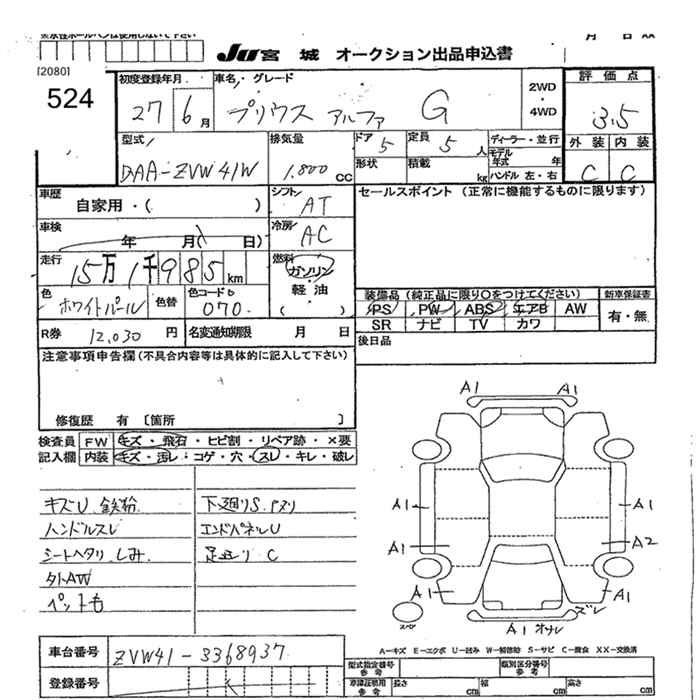 ※水性ボールペンは使用しないで下さい
月 日 xx
JU宮 城 オークション出品申込書
[2080]
524
初度登録年月 車名・グレード
27 6月 プリウス アルファ G
2WD ・ 4WD
評 価 点
3.5
外 装 内 装
C C
型式 排気量 ドア 定員 ディーラー・並行
DAA-ZVW41W 1,800CC 5 5人 モデル年式 年
形状 積載 kg ハンドル 左・右
車歴 自家用・( )
シフト AT
セールスポイント (正常に機能するものに限ります)
車検 年 月( 日)
冷房 AC
走行 15万1千985km
燃料 ガソリン ・ 軽 油 ( )
色 ホワイトパール 色替 色コードNo 070
装備品 (純正品に限り○をつけてください) 新車保証書
PS PW ABS エアB AW 有・無
SR ナビ TV カワ
R券 12,030 円 名変通知期限 月 日
後日品
注意事項申告欄 (不具合内容等は具体的に記入して下さい)
修復歴 有 〔箇所 〕
検査員記入欄 FW キズ・飛石・ヒビ割・リペア跡・×要
内装 キズ・汚レ・コゲ・穴・スレ・キレ・破レ
キズU 鉄粉 下廻りS.クスリ
ハンドルスレ エンドパネルU
シートヘタリ しみ. 足廻り C
タトAW
ペットも
A1 A1
A1 A1
A1 A2
A1 A1
スペア A1 オサレ ズレ
A-キズ E-エクボ U-凹み W-補修跡 S-サビ C-腐食 XX-交換済
車台番号 ZVW41-3368937
登録番号
型式指定番号 参考 類別区分番号 参考
車庫証明用 参考 長さ cm 幅 cm 高さ cm